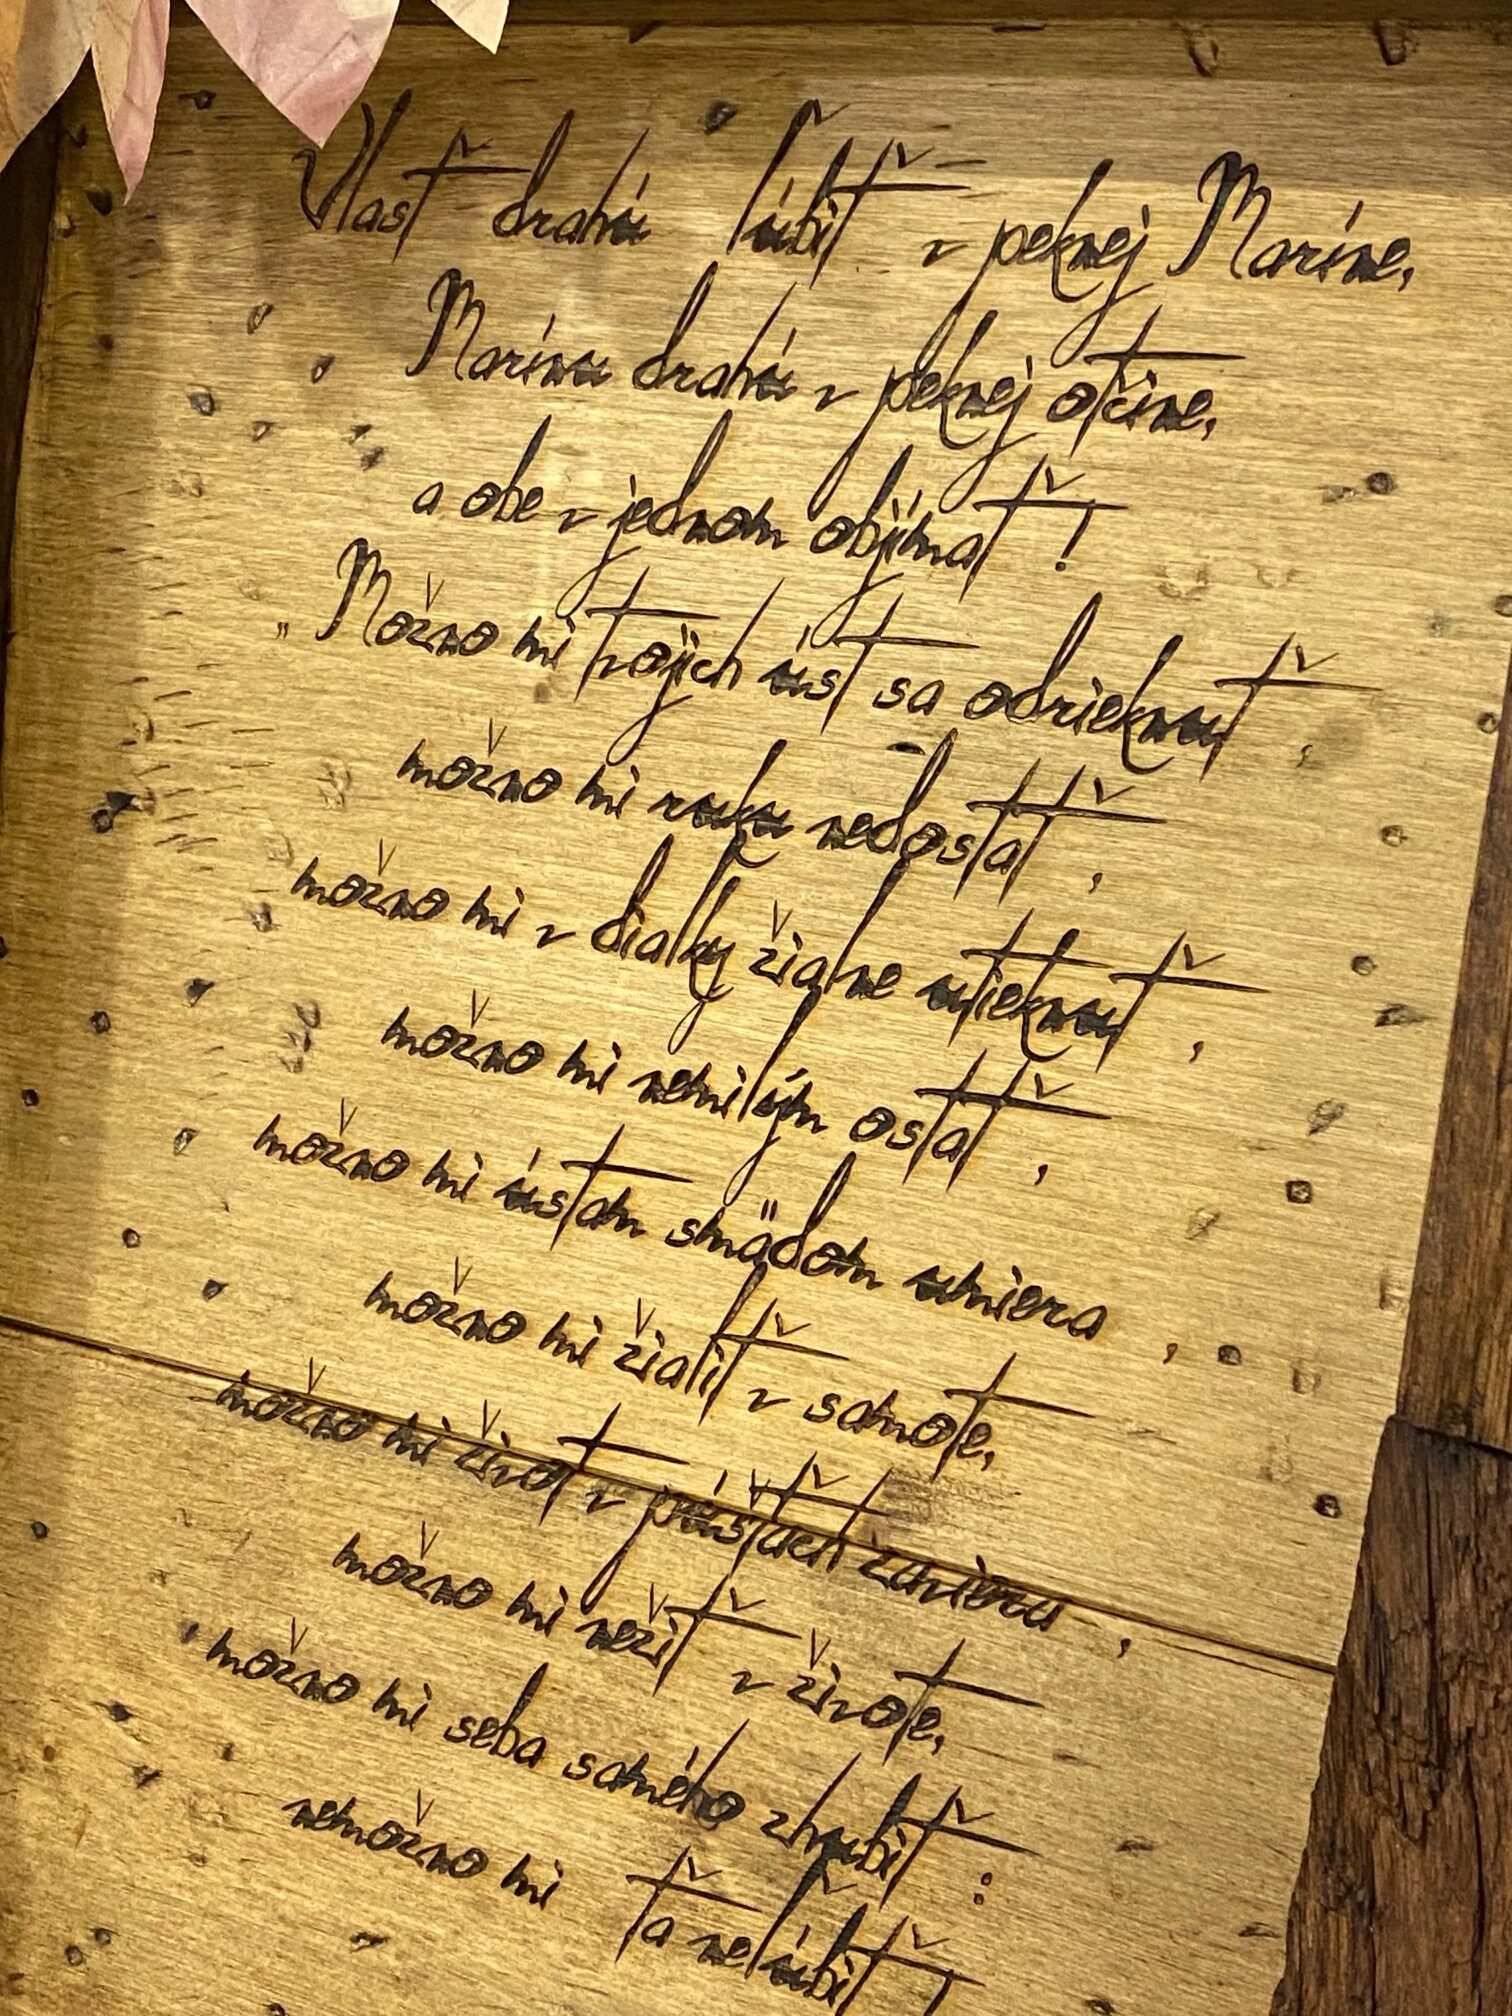 Vlasť drahú ľúbiť v peknej Maríne,
Marínu drahú v peknej otčine,
a obe v jednom objímať!
„Možno mi tvojich úst sa odrieknuť,
možno mi ruku nedostať,
možno mi v diaľky žiaľne utieknuť,
možno mi nemilým ostať,
možno mi ústam smädom umiera,
možno mi žialiť v samote,
možno mi život v púšťach zaviera,
možno mi nežiť v živote,
možno mi seba samého zhubiť:
nemožno mi ťa neľúbiť!